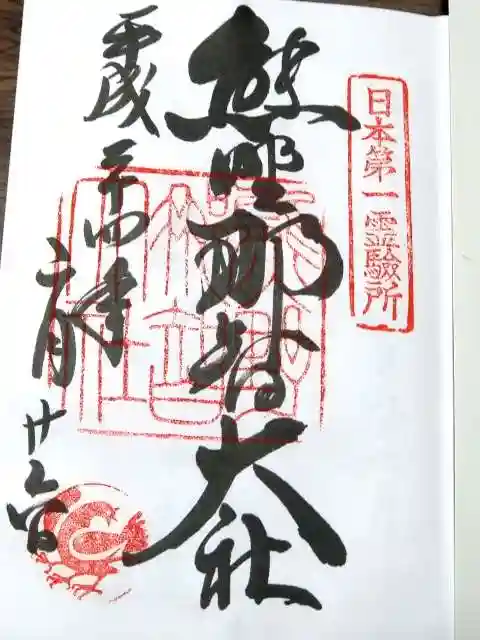 日本第一霊験所
熊野那智大社
平成二十四年
二月廿六日